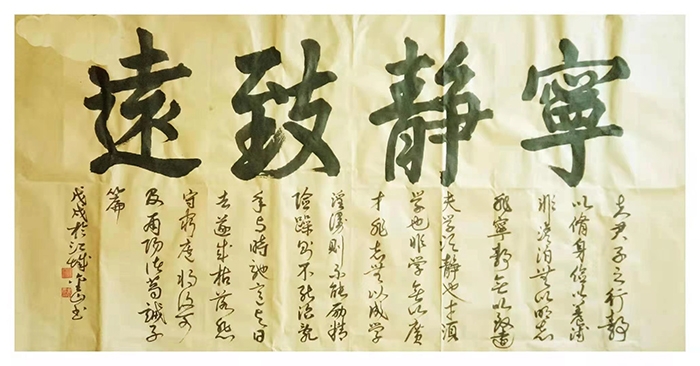 寧靜致遠
夫君子之行靜
以脩身儉以養德
非澹泊無以明志
非寧靜無以致遠
夫學須靜也才須
學也非學無以廣
才非志無以成學
淫漫則不能勵精
險躁則不能治
年與時馳意與日
去遂成枯落悲
守窮廬將復何
及南陽諸葛誡子
篇
戊戌於江城金山書